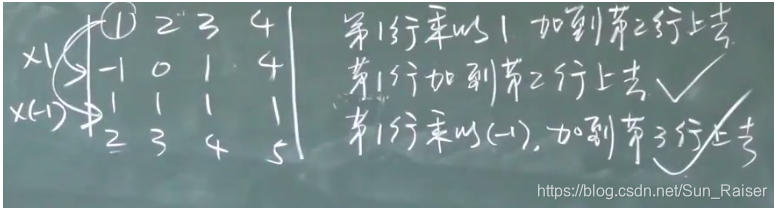 ① 2 3 4 第1行乘以1 加到第2行上去
×1 -1 0 1 4 第1行加到第2行上去 ✓
×(-1) 1 1 1 1 第1行乘以(-1), 加到第3行上去 ✓
2 3 4 5
https://blog.csdn.net/Sun_Raiser